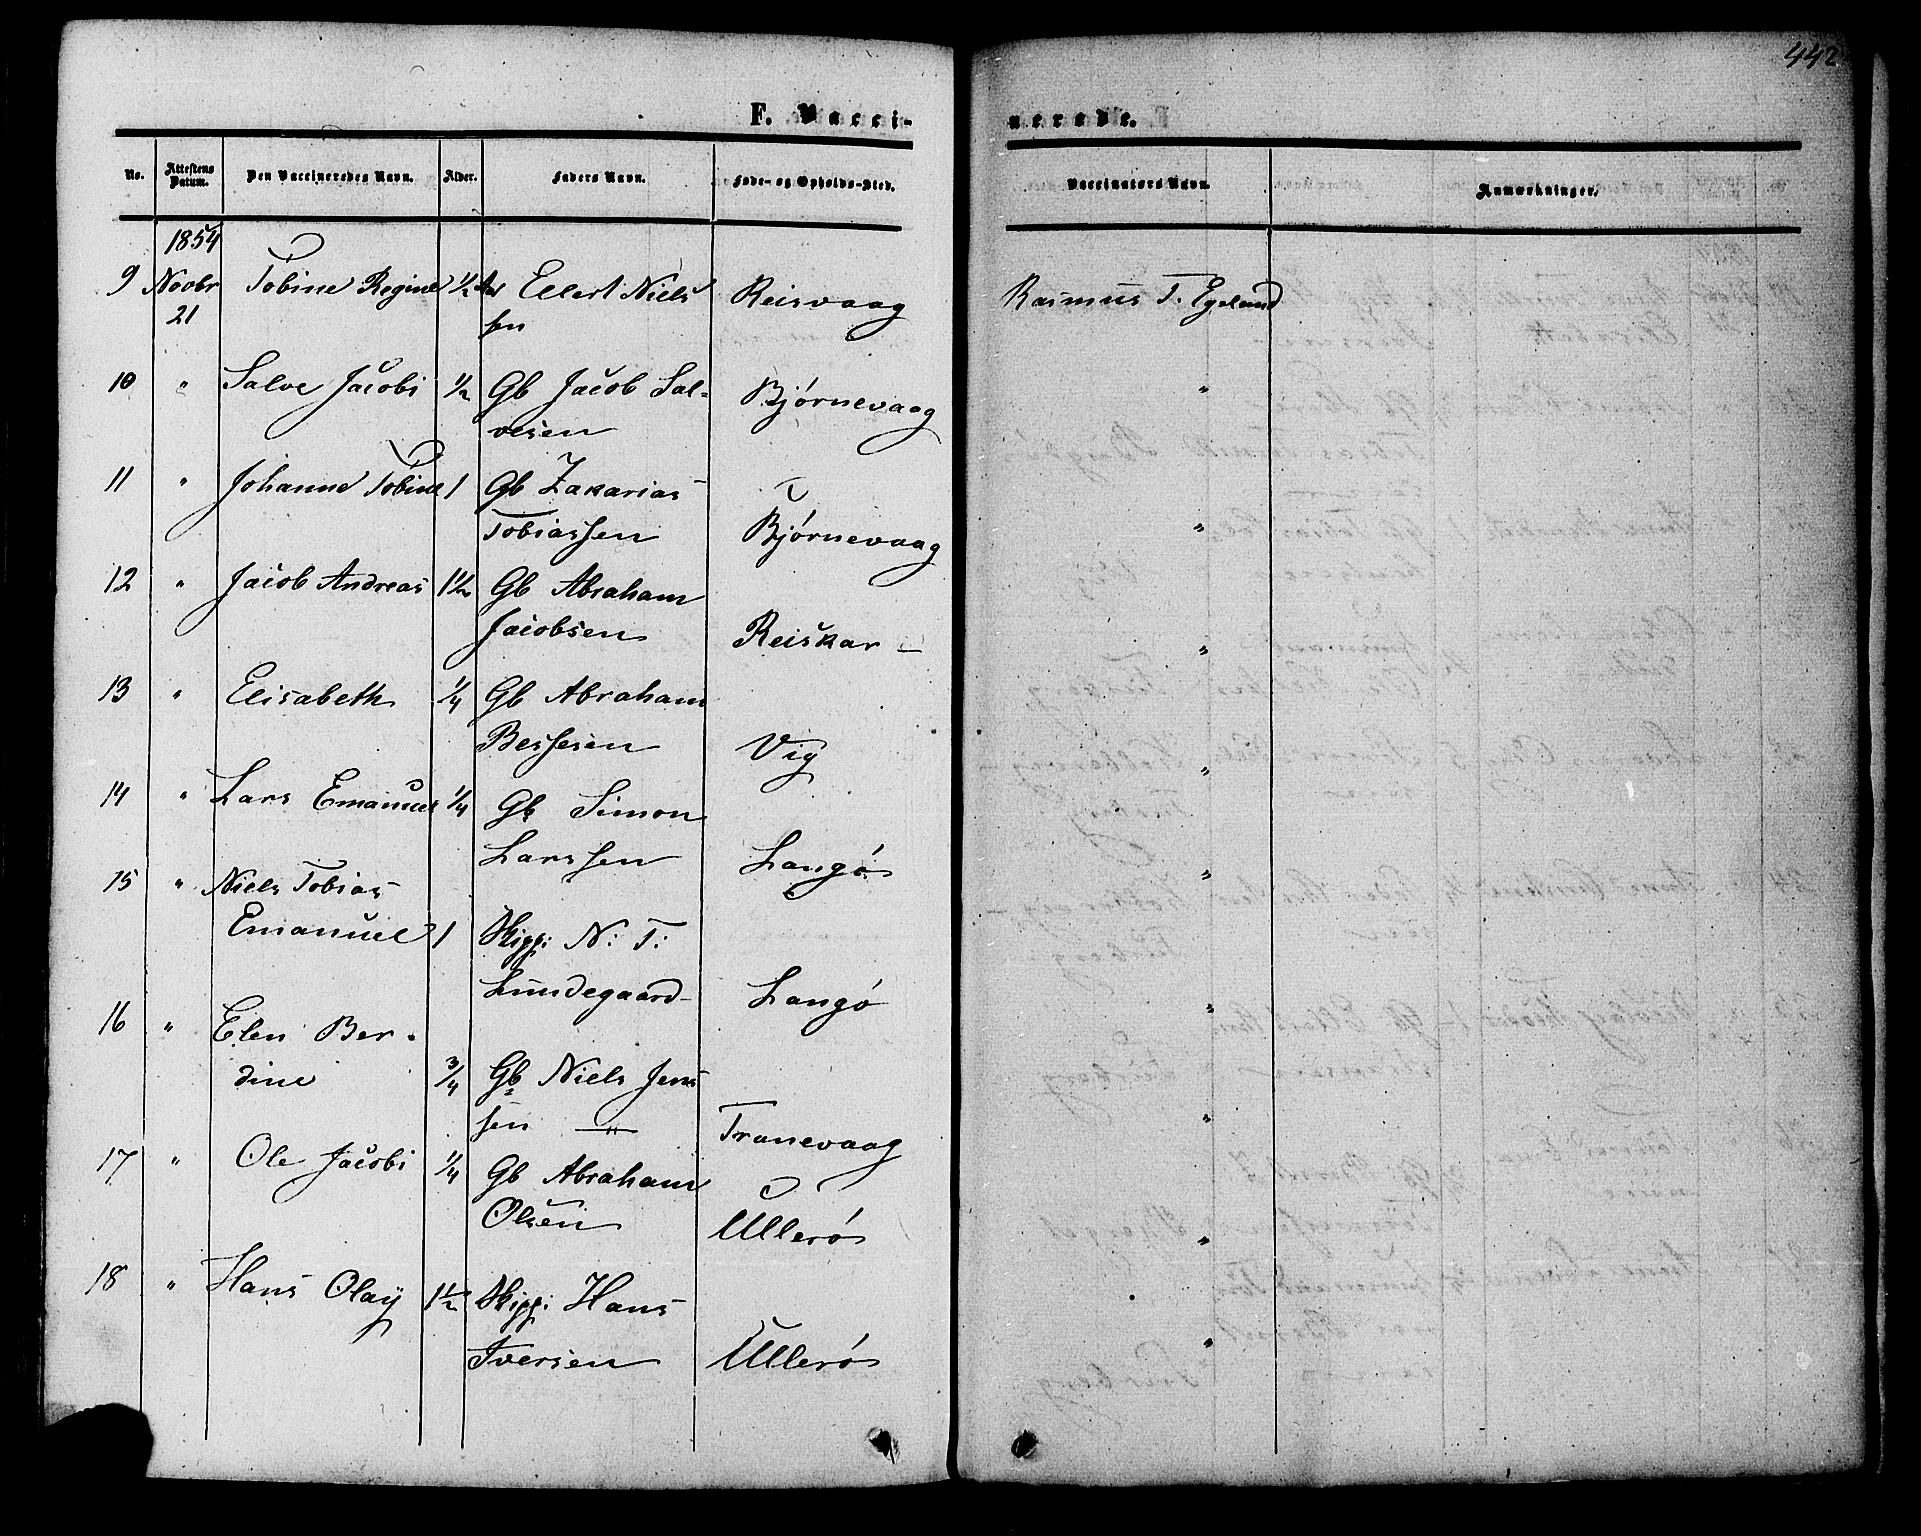 442
F. Vacci-
nerede.
No. Attestens Datum. Den Vaccineredes Navn. Alder. Faders Navn. Føde- og Opholds-Sted. Vaccinators Navn. Anmærkninger.
1854
9 Novbr 21 Tobine Regine 1/2 Aar Ellert Niels Reisvaag Rasmus T. Egeland
sen
10 " Salve Jacobi 1/2 Gb Jacob Sal= Bjørnevaag "
vesen
11 " Johanne Tobine 1 Gb Zakarias
Tobiassen Bjørnevaag "
12 " Jacob Andreas 1 1/2 Gb Abraham
Jacobsen Reiskar – "
13 " Elisabeth 1/4 Gb Abraham
Bessesen Vig "
14 " Lars Emanuel 1/4 Gb Simon
Larssen Langø "
15 " Niels Tobias
Emanuel 1 Skipp: N: T:
Lundegaard Langø "
16 " Elen Ber-
dine 3/4 Gb Niels Jens
sen — " — Tranevaag "
17 " Ole Jacobi 1/4 Gb Abraham
Olsen Ullerø "
18 " Hans Olay 1 1/2 Skipp: Hans
Iversen Ullerø "